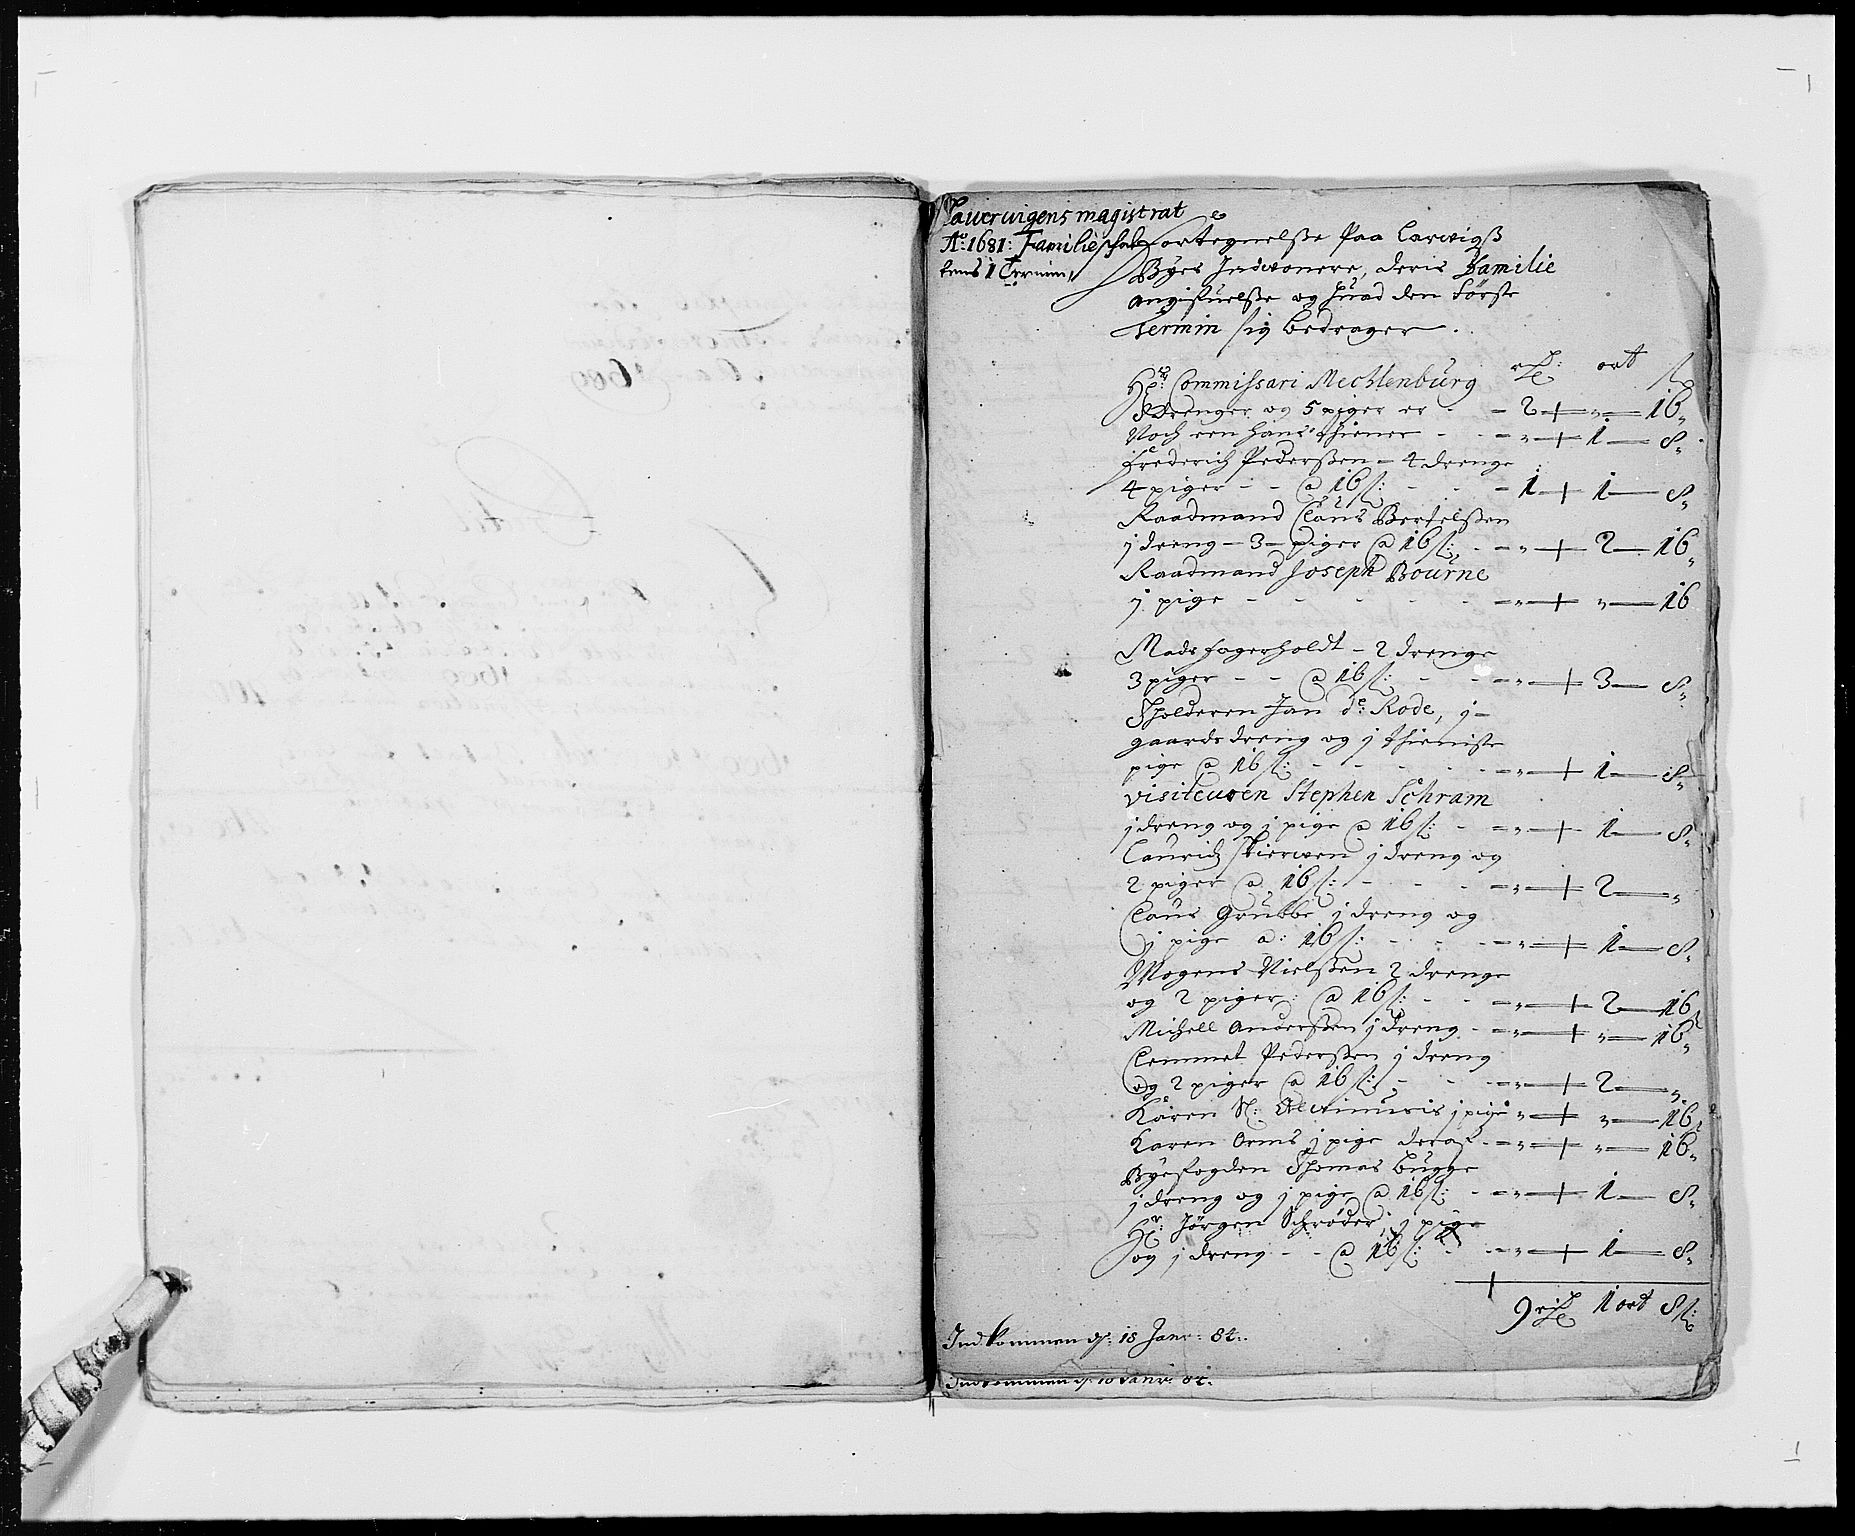 Laurvigens magistrat
Ao: 1681: Familie skat
tens 1 Termin,
Fortegnelsse Paa Larvigs
Byes Indvonere, deris Familie
angifuelsse og huad den Første
Termin sig bedrager.
rdr: ort s
Hr: Commissari Mechlenburg
drenger og 5 piger er - - 2 + „ — 16„
Noch een hans thiener - - „ + 1 — 8„
Frederich Pederssen - 4 drenge
4 piger - - a 16 s: - - - 1 + 1 — 8„
Raadmand Claus Bertelssen
j dreng - 3 - piger a 16 s: - „ + 2 — 16„
Raadmand Joseph Bourne
j pige - - - - - „ + „ — 16
Mads Fagerholdt - 2 drenge
3 piger - - a 16 s: - - „ + 3 — 8„
Tholderen Jan de: Rode, j -
gaards dreng og j thieniste
pige a 16 s: - - - - „ + 1 — 8„
Visiteuren Stephen Schram
j dreng og j pige a 16 s: - „ + 1 — 8„
Lauridz Skierven j dreng og
2 piger a 16 s: - - - „ + 2 — „
Claus Grubbe j dreng og
j pige a: 16 s: - - - „ + 1 — 8„
Mogens Nielssen 2 drenge
og 2 piger: a 16 s: - - „ + 2 — 16„
Michell Anderssen j dreng - „ + „ — 16„
Clemmet Pederssen j dreng
og 2 piger a 16 s: - - „ + 2 — „
Karen Sl: j pige „ + „ — 16„
Karen Orms j pige - „ + „ — 16„
Byefogden Thomas Bugge
j dreng og j pige a 16 s: - „ + 1 — 8„
Hr: Jørgen Schrøder, j pige
og j dreng - - a 16 s: - - „ + 1 — 8„
9 rdr 1 ort 8 s:
Indkommen d: 18 Janr: 84:.